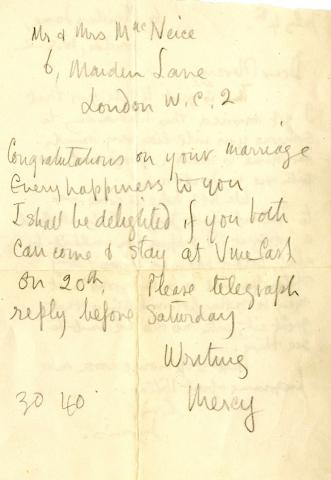 Mr & Mrs MacNeice
6, Maiden Lane
London W.C. 2
Congratulations on your marriage
Every happiness to you
I shall be delighted if you both
can come & stay at
on 20th. Please telegraph
reply before Saturday
Writing
Mercy
30 40